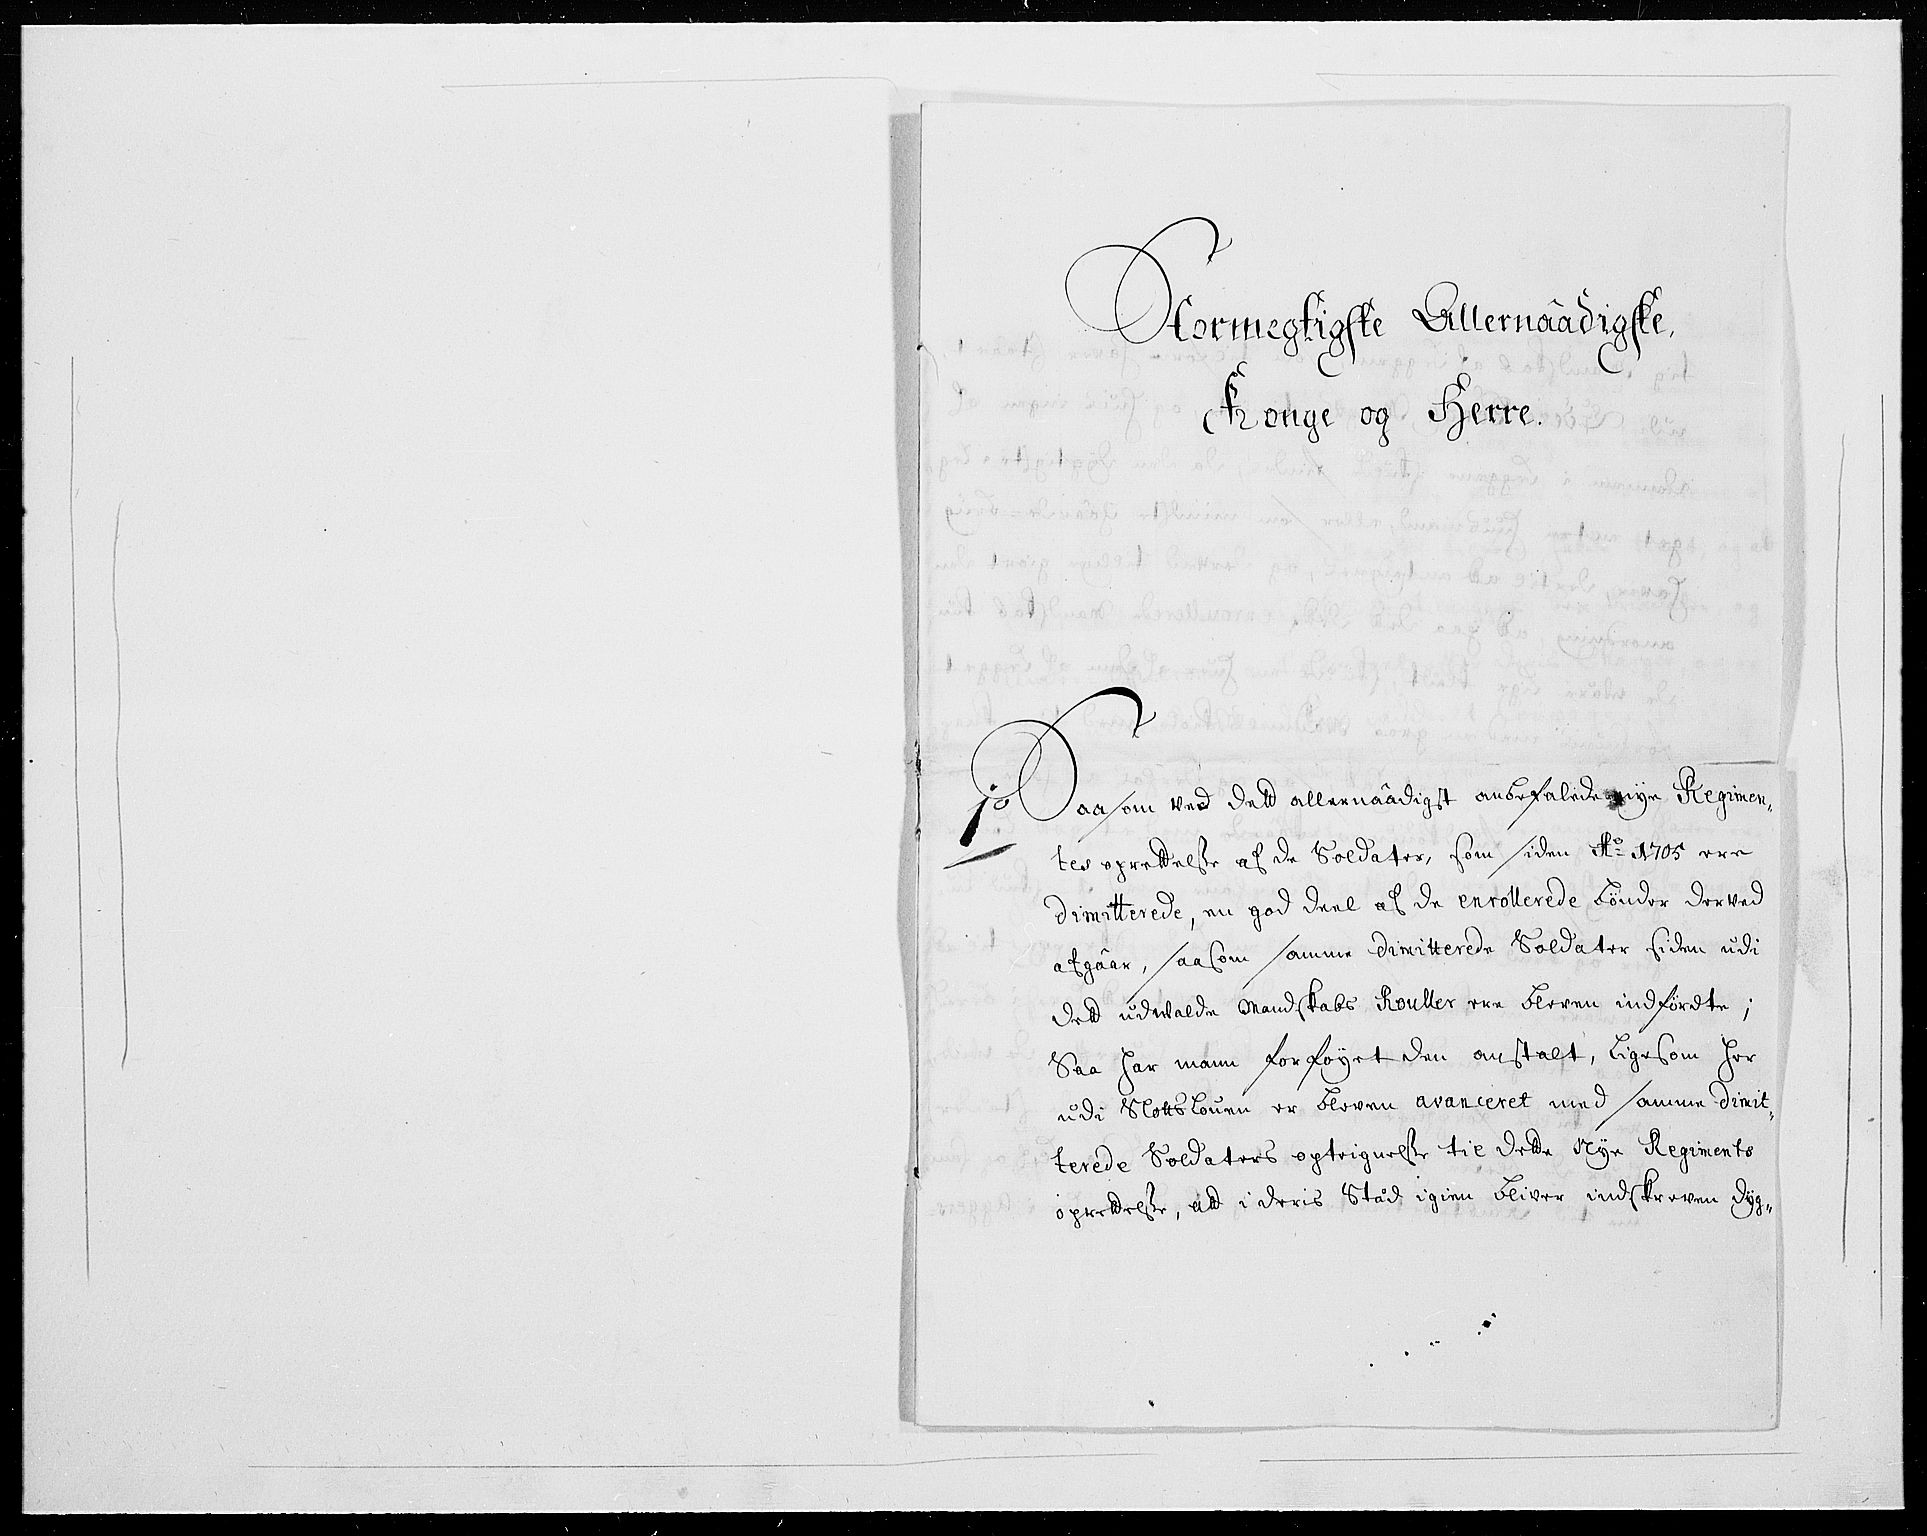 Stormegtigste Allernaadigste,
Konge og Herre.
1o Saasom ved dett allernaadigst anbefalede nye Regimen,,
tes oprettelsse af de Soldater, som siden Ao 1705 ere
dimitterede, en god deel af de enrollerede bönder derved
afgaar, saasom samme dimitterede Soldater siden udi
dett udvalde Mandskabs Roulles ere bleven indfördte;
Saa har mann forföyet den anstalt, ligesom her
udi Slottsloven er bleven avanceret med samme dimit,,
terede Soldaters opteignelsse til dette Nye Regiments
oprettelsse, att i deris Stæd igien bliver indskreven dyg,,